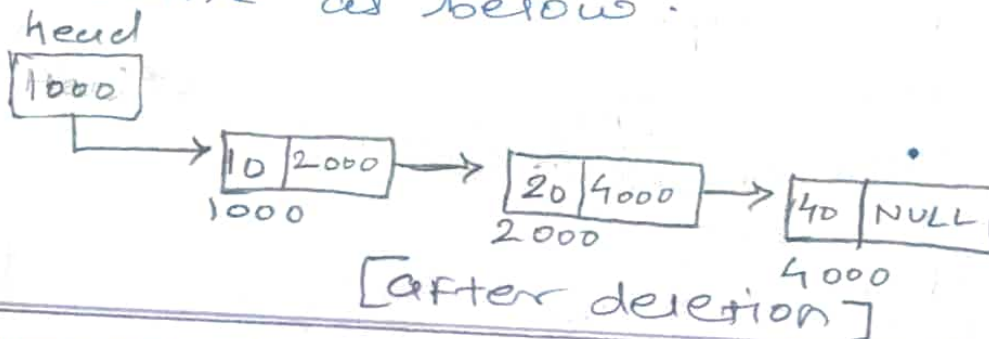 as below.
head
1000
10 2000
1000
20 4000
2000
40 NULL
4000
[after deletion]